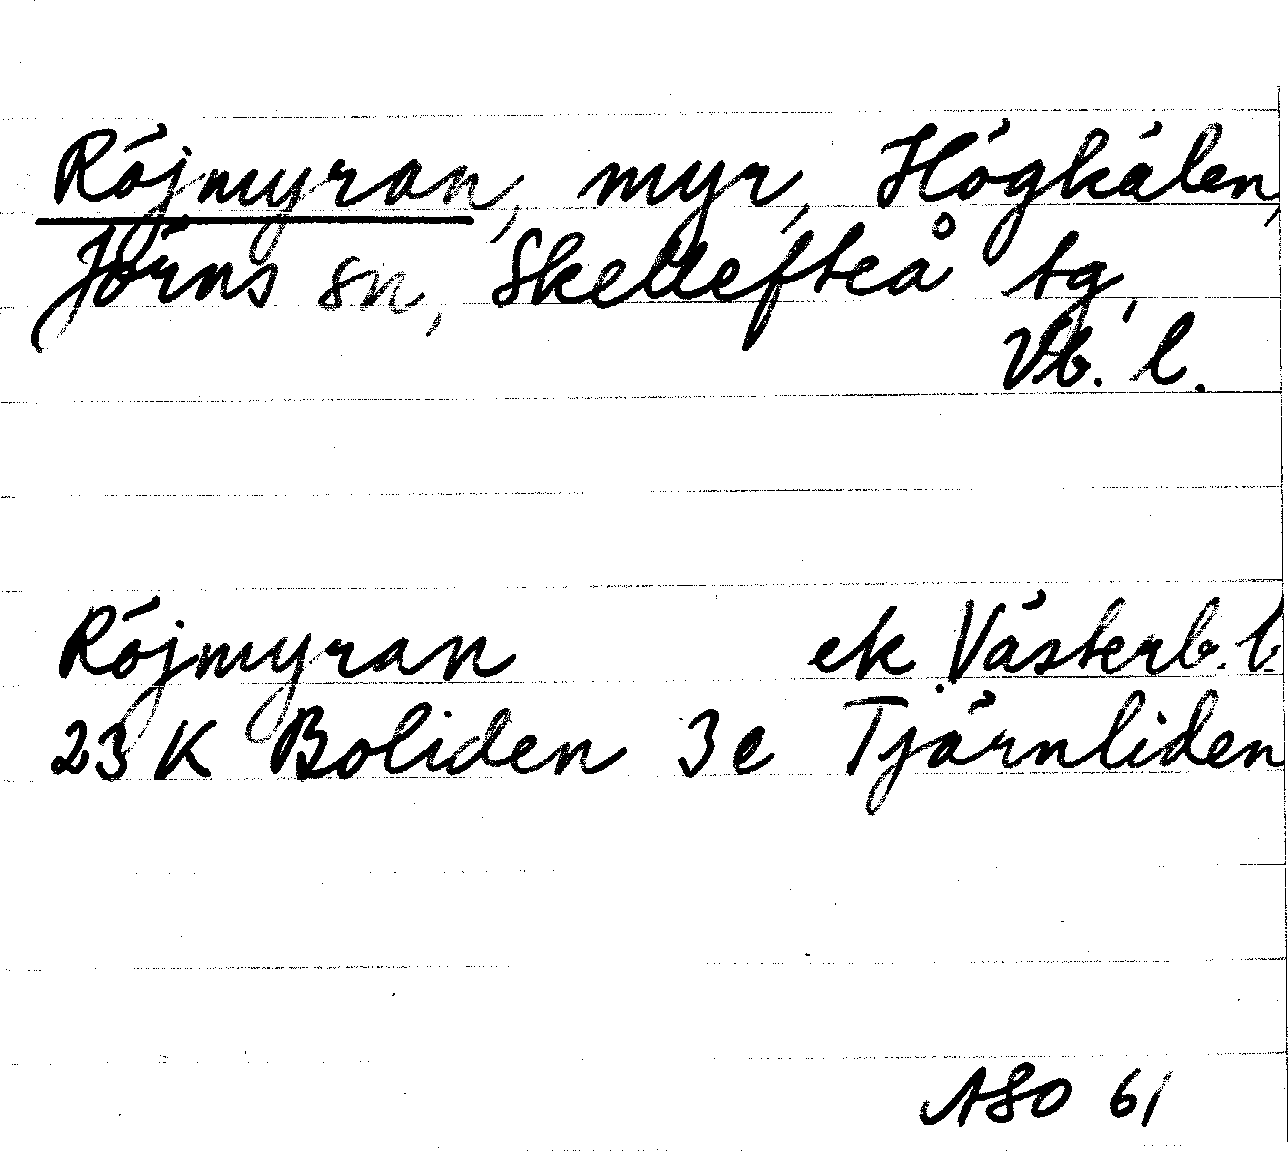 Röjmyran, myr, Högkälen,
Jörns sn, Skellefteå tg,
Vb. l.
Röjmyran ek. Västerb. l
23 K Boliden 3e Tjärnliden
ASO 61